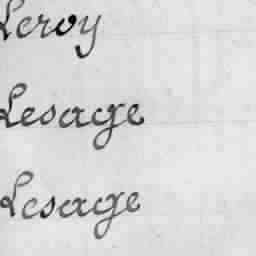 Leroy
Lesage
Lesage